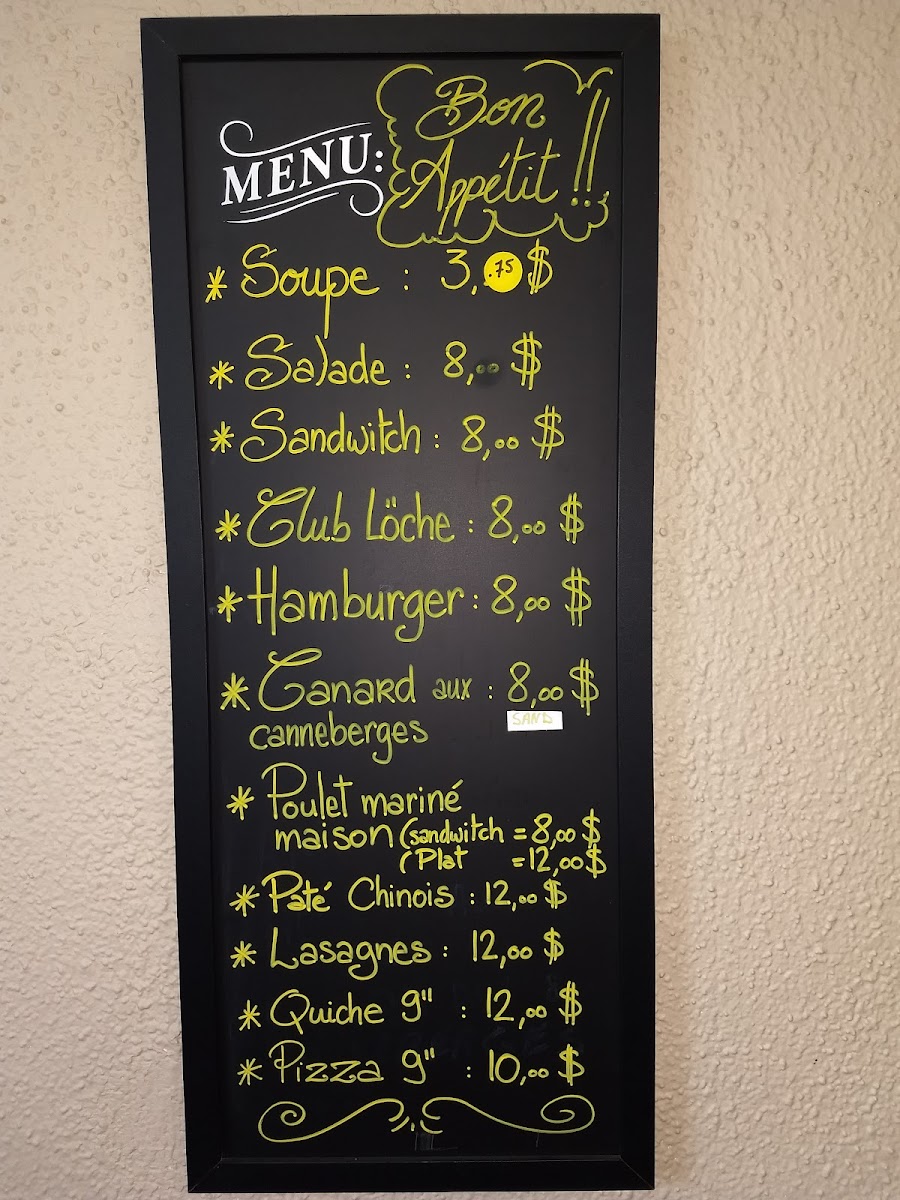 MENU:
Bon
Appétit !!
* Soupe : 3,.75 $
* Salade : 8,00 $
* Sandwitch : 8,00 $
* Club Löche : 8,00 $
* Hamburger : 8,00 $
* Canard aux : 8,00 $
canneberges SAND
* Poulet mariné
maison (sandwitch = 8,00 $
(Plat = 12,00 $
* Paté Chinois : 12,00 $
* Lasagnes : 12,00 $
* Quiche 9" : 12,00 $
* Pizza 9" : 10,00 $